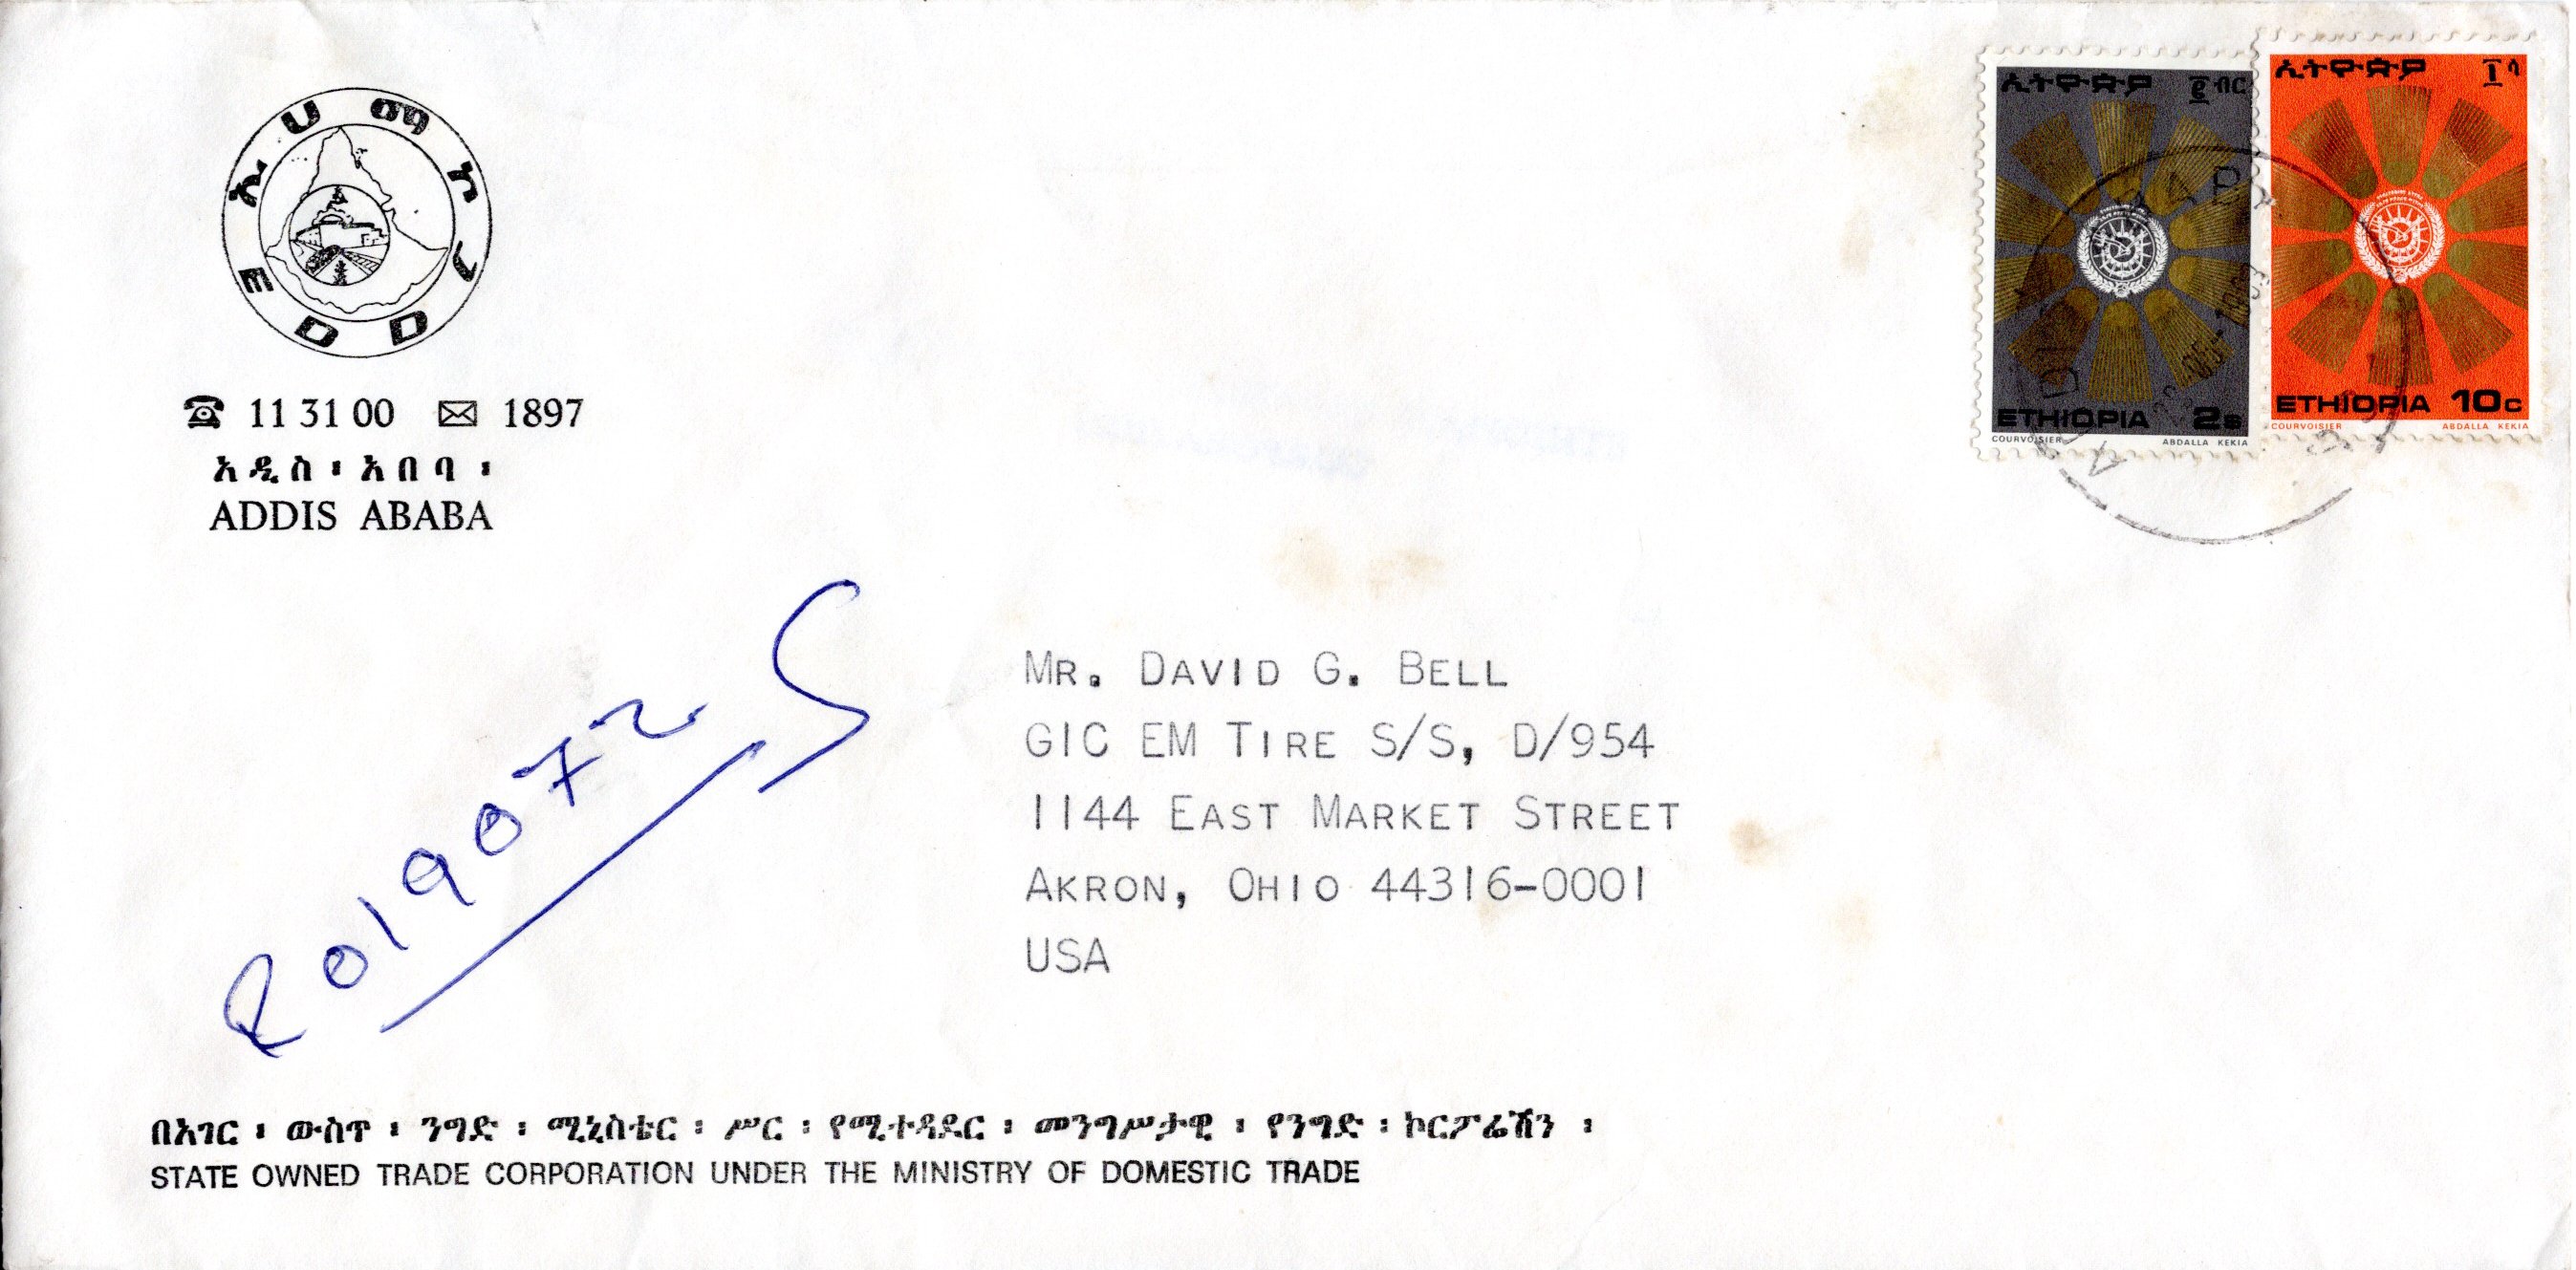 እ ህ ማ ኮ
E D D C
11 31 00 1897
አዲስ ፡ አበባ ፡
ADDIS ABABA
ኢትዮጵያ ፪ ብር
ETHIOPIA 2$
COURVOISIER ABDALLA KEKIA
ኢትዮጵያ ፲ ሳ
ETHIOPIA 10c
COURVOISIER ABDALLA KEKIA
R019072
MR. DAVID G. BELL
GIC EM TIRE S/S, D/954
1144 EAST MARKET STREET
AKRON, OHIO 44316-0001
USA
በአገር ፡ ውስጥ ፡ ንግድ ፡ ሚኒስቴር ፡ ሥር ፡ የሚተዳደር ፡ መንግሥታዊ ፡ የንግድ ፡ ኮርፖሬሽን ፡
STATE OWNED TRADE CORPORATION UNDER THE MINISTRY OF DOMESTIC TRADE